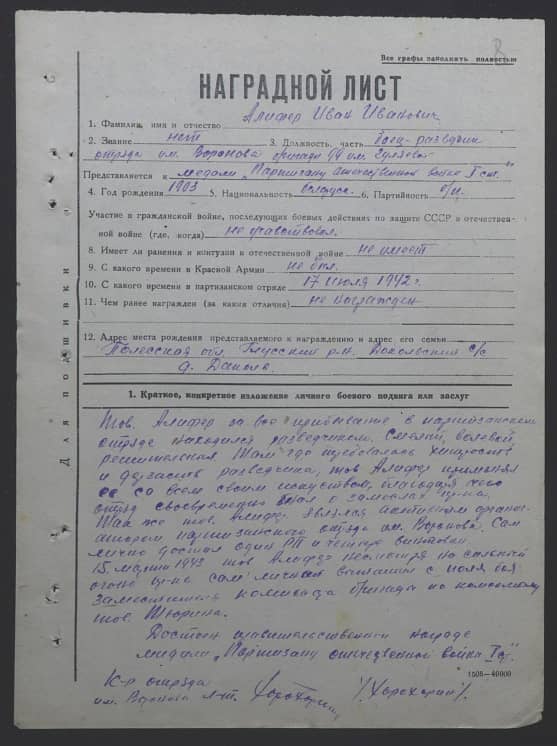 Все графы заполнить полностью
НАГРАДНОЙ ЛИСТ
1. Фамилия, имя и отчество Алифер Иван Иванович
2. Звание нет 3. Должность, часть боец-разведчик
отряда им. Воронова бригады 99 им. Гуляева
Представляется к медали „Партизану отечественной войны I ст."
4. Год рождения 1903 5. Национальность белорус. 6. Партийность б/п.
Участие в гражданской войне, последующих боевых действиях по защите СССР и отечествен-
ной войне (где, когда) не участвовал.
8. Имеет ли ранения и контузии в отечественной войне не имеет
9. С какого времени в Красной Армии не был.
10. С какого времени в партизанском отряде 17 июля 1942 г.
11. Чем ранее награжден (за какия отличия) не награжден
12. Адрес места рождения представляемого к награждению и адрес его семьи
Полесская обл. Глусский р-н. с/с
д.
Для подшивки
1. Краткое, конкретное изложение личного боевого подвига или заслуг
Тов. Алифер за все прибывание в партизанском
отряде находился разведчиком. Смелый, волевой,
решительный. Там где требовалось хитрость
и разведчика, тов. Алифер применял
ее со всем своим искусством, благодаря чего
отряд своевременно знал о замыслах пр-ка.
Так же тов. Алифер являлся активным органи-
затором партизанского отряда им. Воронова. Сам
лично достал один РП и четыре винтовки.
15 марта 1943 тов. Алифер несмотря на сильный
огонь пр-ка сам лично с поля боя
заместителя командира бригады по комсомолу
тов. Шюрина.
Достоин правительственной награде
медали „Партизану отечественной войны I ст."
1505—40000
К-р отряда
им. Воронова л-т. /Хорохорин/